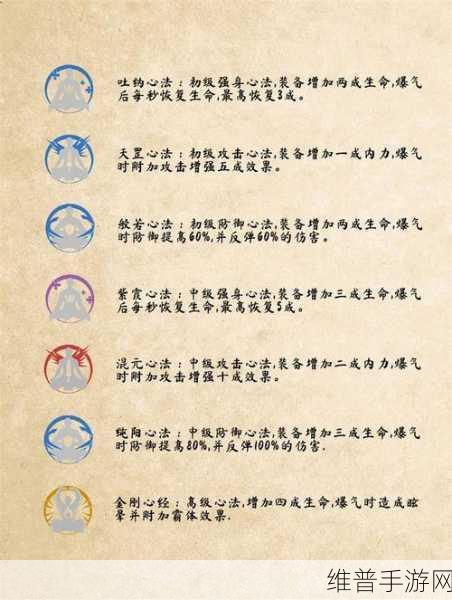 吐纳心法：初级强身心法,装备增加两成生命,爆气
后每秒恢复生命,最高恢复3成。
天罡心法：初级攻击心法,装备增加一成内力,爆气
时附加攻击增强五成效果。
般若心法：初级防御心法,装备增加两成生命,爆气
时防御提高60%,并反弹60%的伤害。
紫霞心法：中级强身心法,装备增加三成生命,爆气
后每秒恢复生命,最高恢复5成。
混元心法：中级攻击心法,装备增加二成内力,爆气
时附加攻击增强十成效果。
纯阳心法：中级防御心法,装备增加三成生命,爆气
时防御提高80%,并反弹100%的伤害.
金刚心经：高级心法,增加四成生命,爆气时造成眩
晕并附加霸体效果.
维普手游网